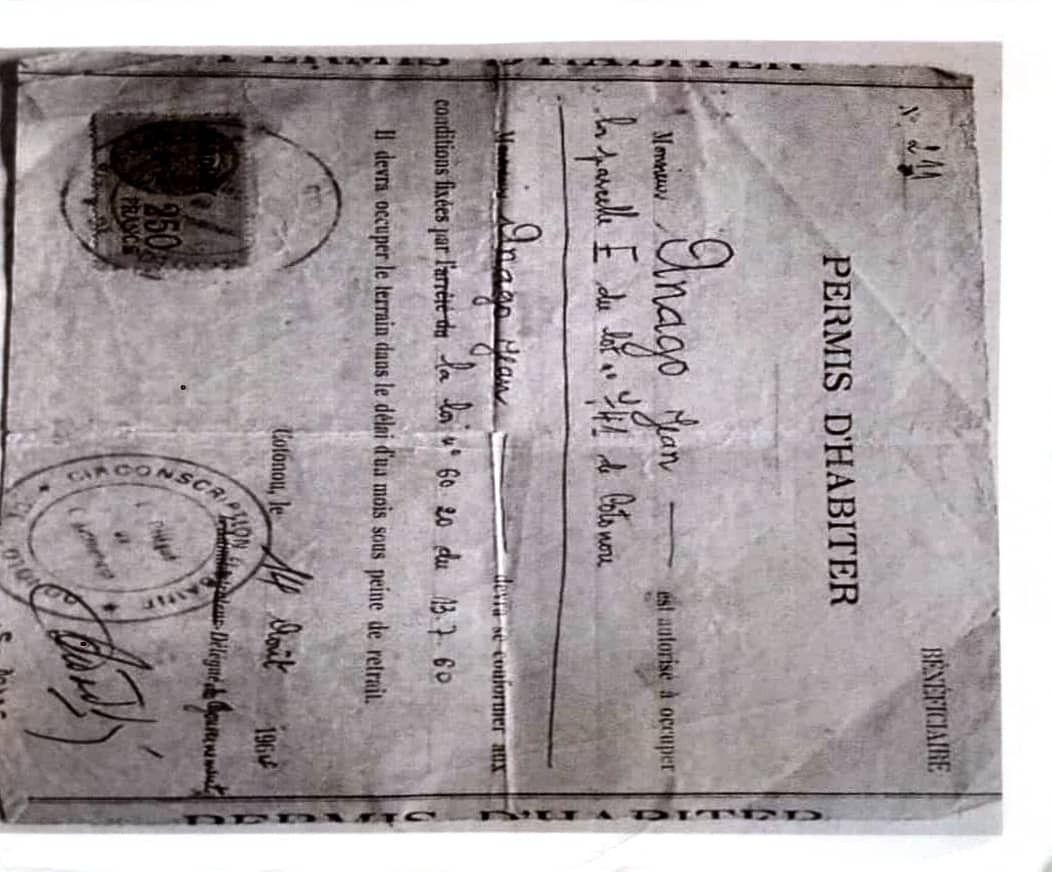 PERMIS D'HABITER
BÉNÉFICIAIRE
PERMIS D'HABITER
Monsieur Anago Jean — est autorisé à occuper
la parcelle I du lot n° de Cotonou
Anago Jean devra se conformer aux
conditions fixées par l'arrêté du la loi n° 60 20 du 13.7.60
Il devra occuper le terrain dans le délai d'un mois sous peine de retrait.
Cotonou, le 14 Août 196
Délégué du Gouvernement
CIRCONSCRIPTION URBAINE
350F
FRANCE
PERMIS D'HABITER